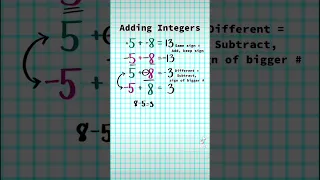 Adding Integers
5 + 8 = 13
Same sign = Add, keep sign
-5 + -8 = -13
5 + -8 = -3
Different = Subtract, sign of bigger #
-5 + 8 = 3
8-5=3
5
-5
Different =
Subtract,
sign of bigger #